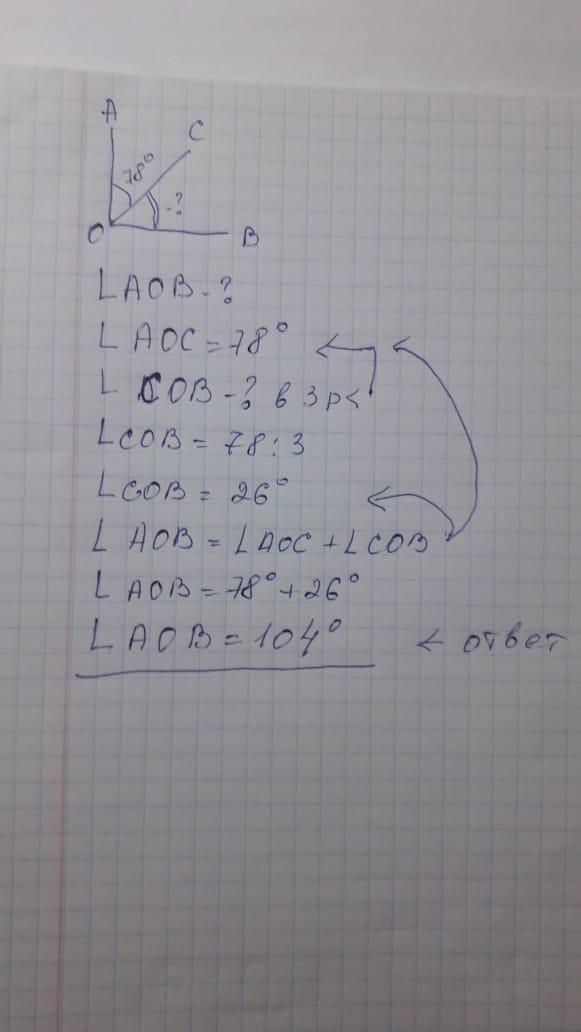 A
C
78°
-?
O
B
∟AOB-?
∟AOC=78°
∟COB-? в 3 р<
∟COB=78:3
∟COB=26°
∟AOB=∟AOC+∟COB
∟AOB=78°+26°
∟AOB=104° ← ответ